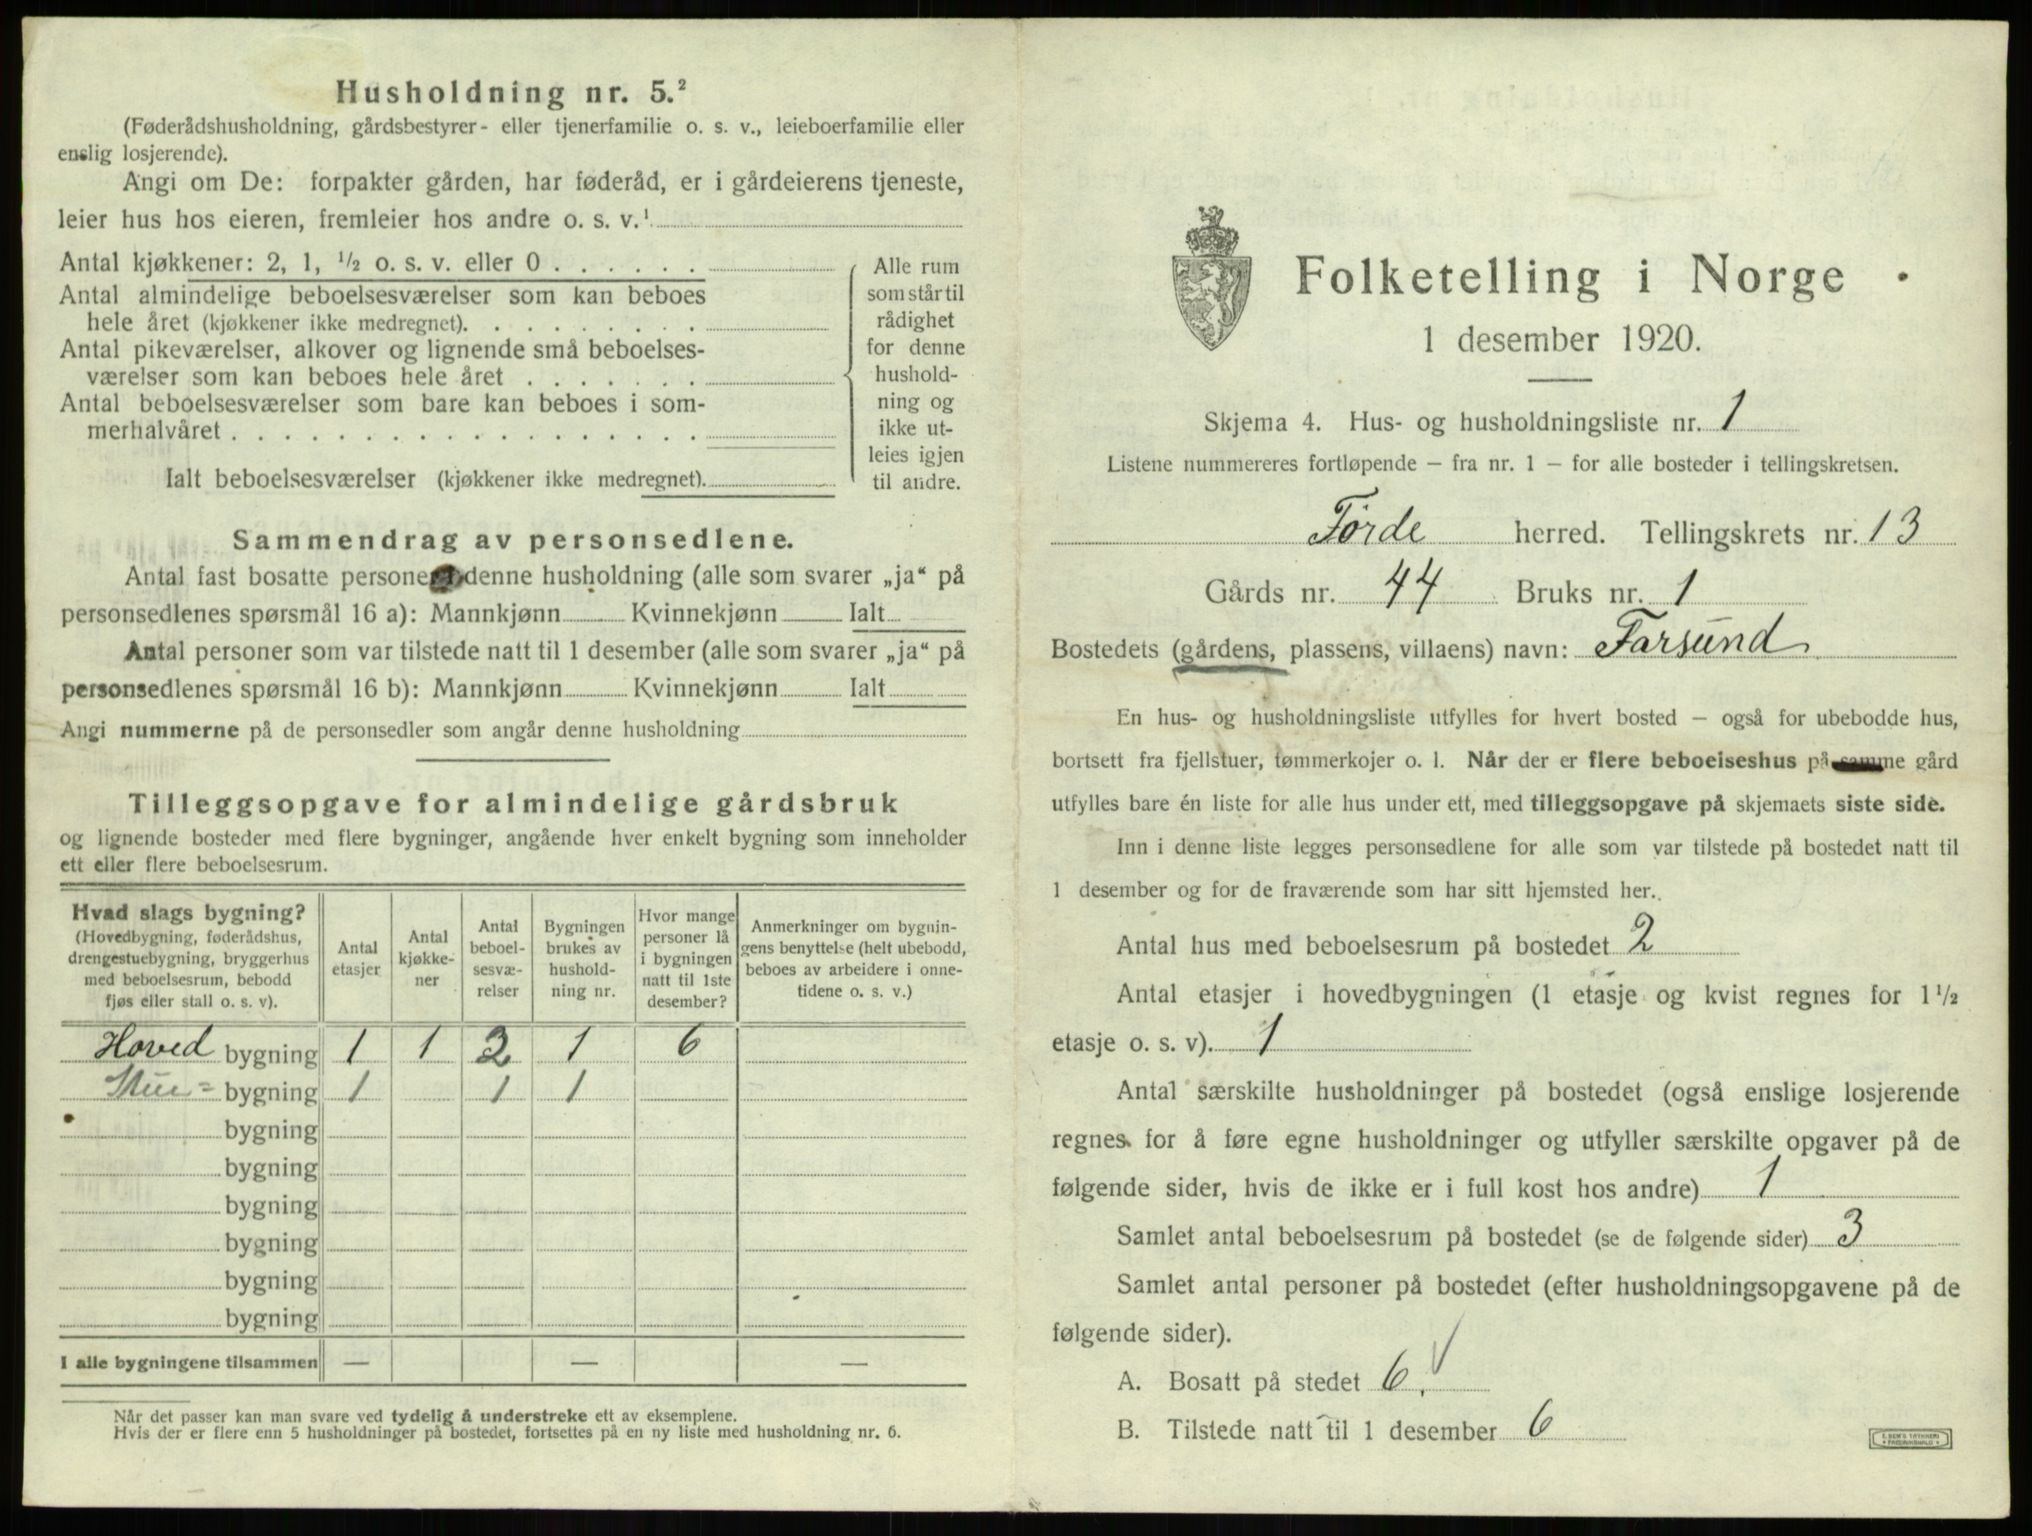 Husholdning nr. 5.²
(Føderådshusholdning, gårdsbestyrer- eller tjenerfamilie o. s. v., leieboerfamilie eller
enslig losjerende).
Angi om De: forpakter gården, har føderåd, er i gårdeierens tjeneste,
leier hus hos eieren, fremleier hos andre o. s. v.¹
Antal kjøkkener: 2, 1, ½ o. s. v. eller 0 . . . . . .
Antal almindelige beboelsesværelser som kan beboes
hele året (kjøkkener ikke medregnet). . . . . . . . .
Antal pikeværelser, alkover og lignende små beboelses-
værelser som kan beboes hele året . . . . . . .
Antal beboelsesværelser som bare kan beboes i som-
merhalvåret . . . . . . . . . . . . . . . . . .
Ialt beboelsesværelser (kjøkkener ikke medregnet).
Alle rum
som står til
rådighet
for denne
hushold-
ning og
ikke ut-
leies igjen
til andre.
Sammendrag av personsedlene.
Antal fast bosatte persone denne husholdning (alle som svarer „ja“ på
personsedlenes spørsmål 16 a): Mannkjønn Kvinnekjønn Ialt
Antal personer som var tilstede natt til 1 desember (alle som svarer „ja“ på
personsedlenes spørsmål 16 b): Mannkjønn Kvinnekjønn Ialt
Angi nummerne på de personsedler som angår denne husholdning
Tilleggsopgave for almindelige gårdsbruk
og lignende bosteder med flere bygninger, angående hver enkelt bygning som inneholder
ett eller flere beboelsesrum.
Hvad slags bygning?
(Hovedbygning, føderådshus,
drengestuebygning, bryggerhus
med beboelsesrum, bebodd
fjøs eller stall o. s. v).
Antal
etasjer
Antal
kjøkke-
ner
Antal
beboel-
sesvæ-
relser
Bygningen
brukes av
hushold-
ning nr.
Hvor mange
personer lå
i bygningen
natt til 1ste
desember?
Anmerkninger om bygnin-
gens benyttelse (helt ubebodd,
beboes av arbeidere i onne-
tidene o. s. v.)
Hoved bygning 1 1 2 1 6
Stue= bygning 1 1 1
bygning
bygning
bygning
bygning
bygning
bygning
I alle bygningene tilsammen — — —
Når det passer kan man svare ved tydelig å understreke ett av eksemplene.
Hvis der er flere enn 5 husholdninger på bostedet, fortsettes på en ny liste med husholdning nr. 6.
Folketelling i Norge
1 desember 1920.
Skjema 4. Hus- og husholdningsliste nr. 1
Listene nummereres fortløpende – fra nr. 1 – for alle bosteder i tellingskretsen.
Førde herred. Tellingskrets nr. 13
Gårds nr. 44 Bruks nr. 1
Bostedets (gårdens, plassens, villaens) navn: Farsund
En hus- og husholdningsliste utfylles for hvert bosted – også for ubebodde hus,
bortsett fra fjellstuer, tømmerkojer o. l. Når der er flere beboelseshus på samme gård
utfylles bare én liste for alle hus under ett, med tilleggsopgave på skjemaets siste side.
Inn i denne liste legges personsedlene for alle som var tilstede på bostedet natt til
1 desember og for de fraværende som har sitt hjemsted her.
Antal hus med beboelsesrum på bostedet 2
Antal etasjer i hovedbygningen (1 etasje og kvist regnes for 1½
etasje o. s. v). 1
Antal særskilte husholdninger på bostedet (også enslige losjerende
regnes for å føre egne husholdninger og utfyller særskilte opgaver på de
følgende sider, hvis de ikke er i full kost hos andre) 1
Samlet antal beboelsesrum på bostedet (se de følgende sider) 3
Samlet antal personer på bostedet (efter husholdningsopgavene på de
følgende sider).
A. Bosatt på stedet 6.
B. Tilstede natt til 1 desember 6